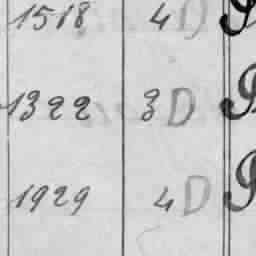 1518 4 D
1322 3 D
1929 4 D